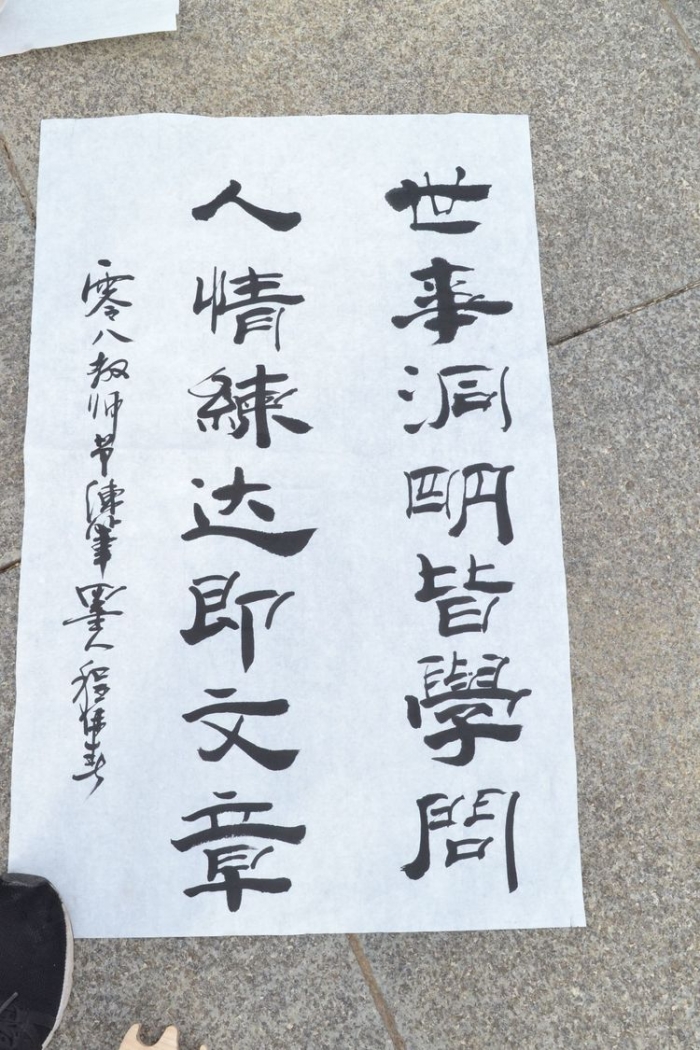 世事洞明皆學問
人情練达即文章
零八教师节涷筆墨人程